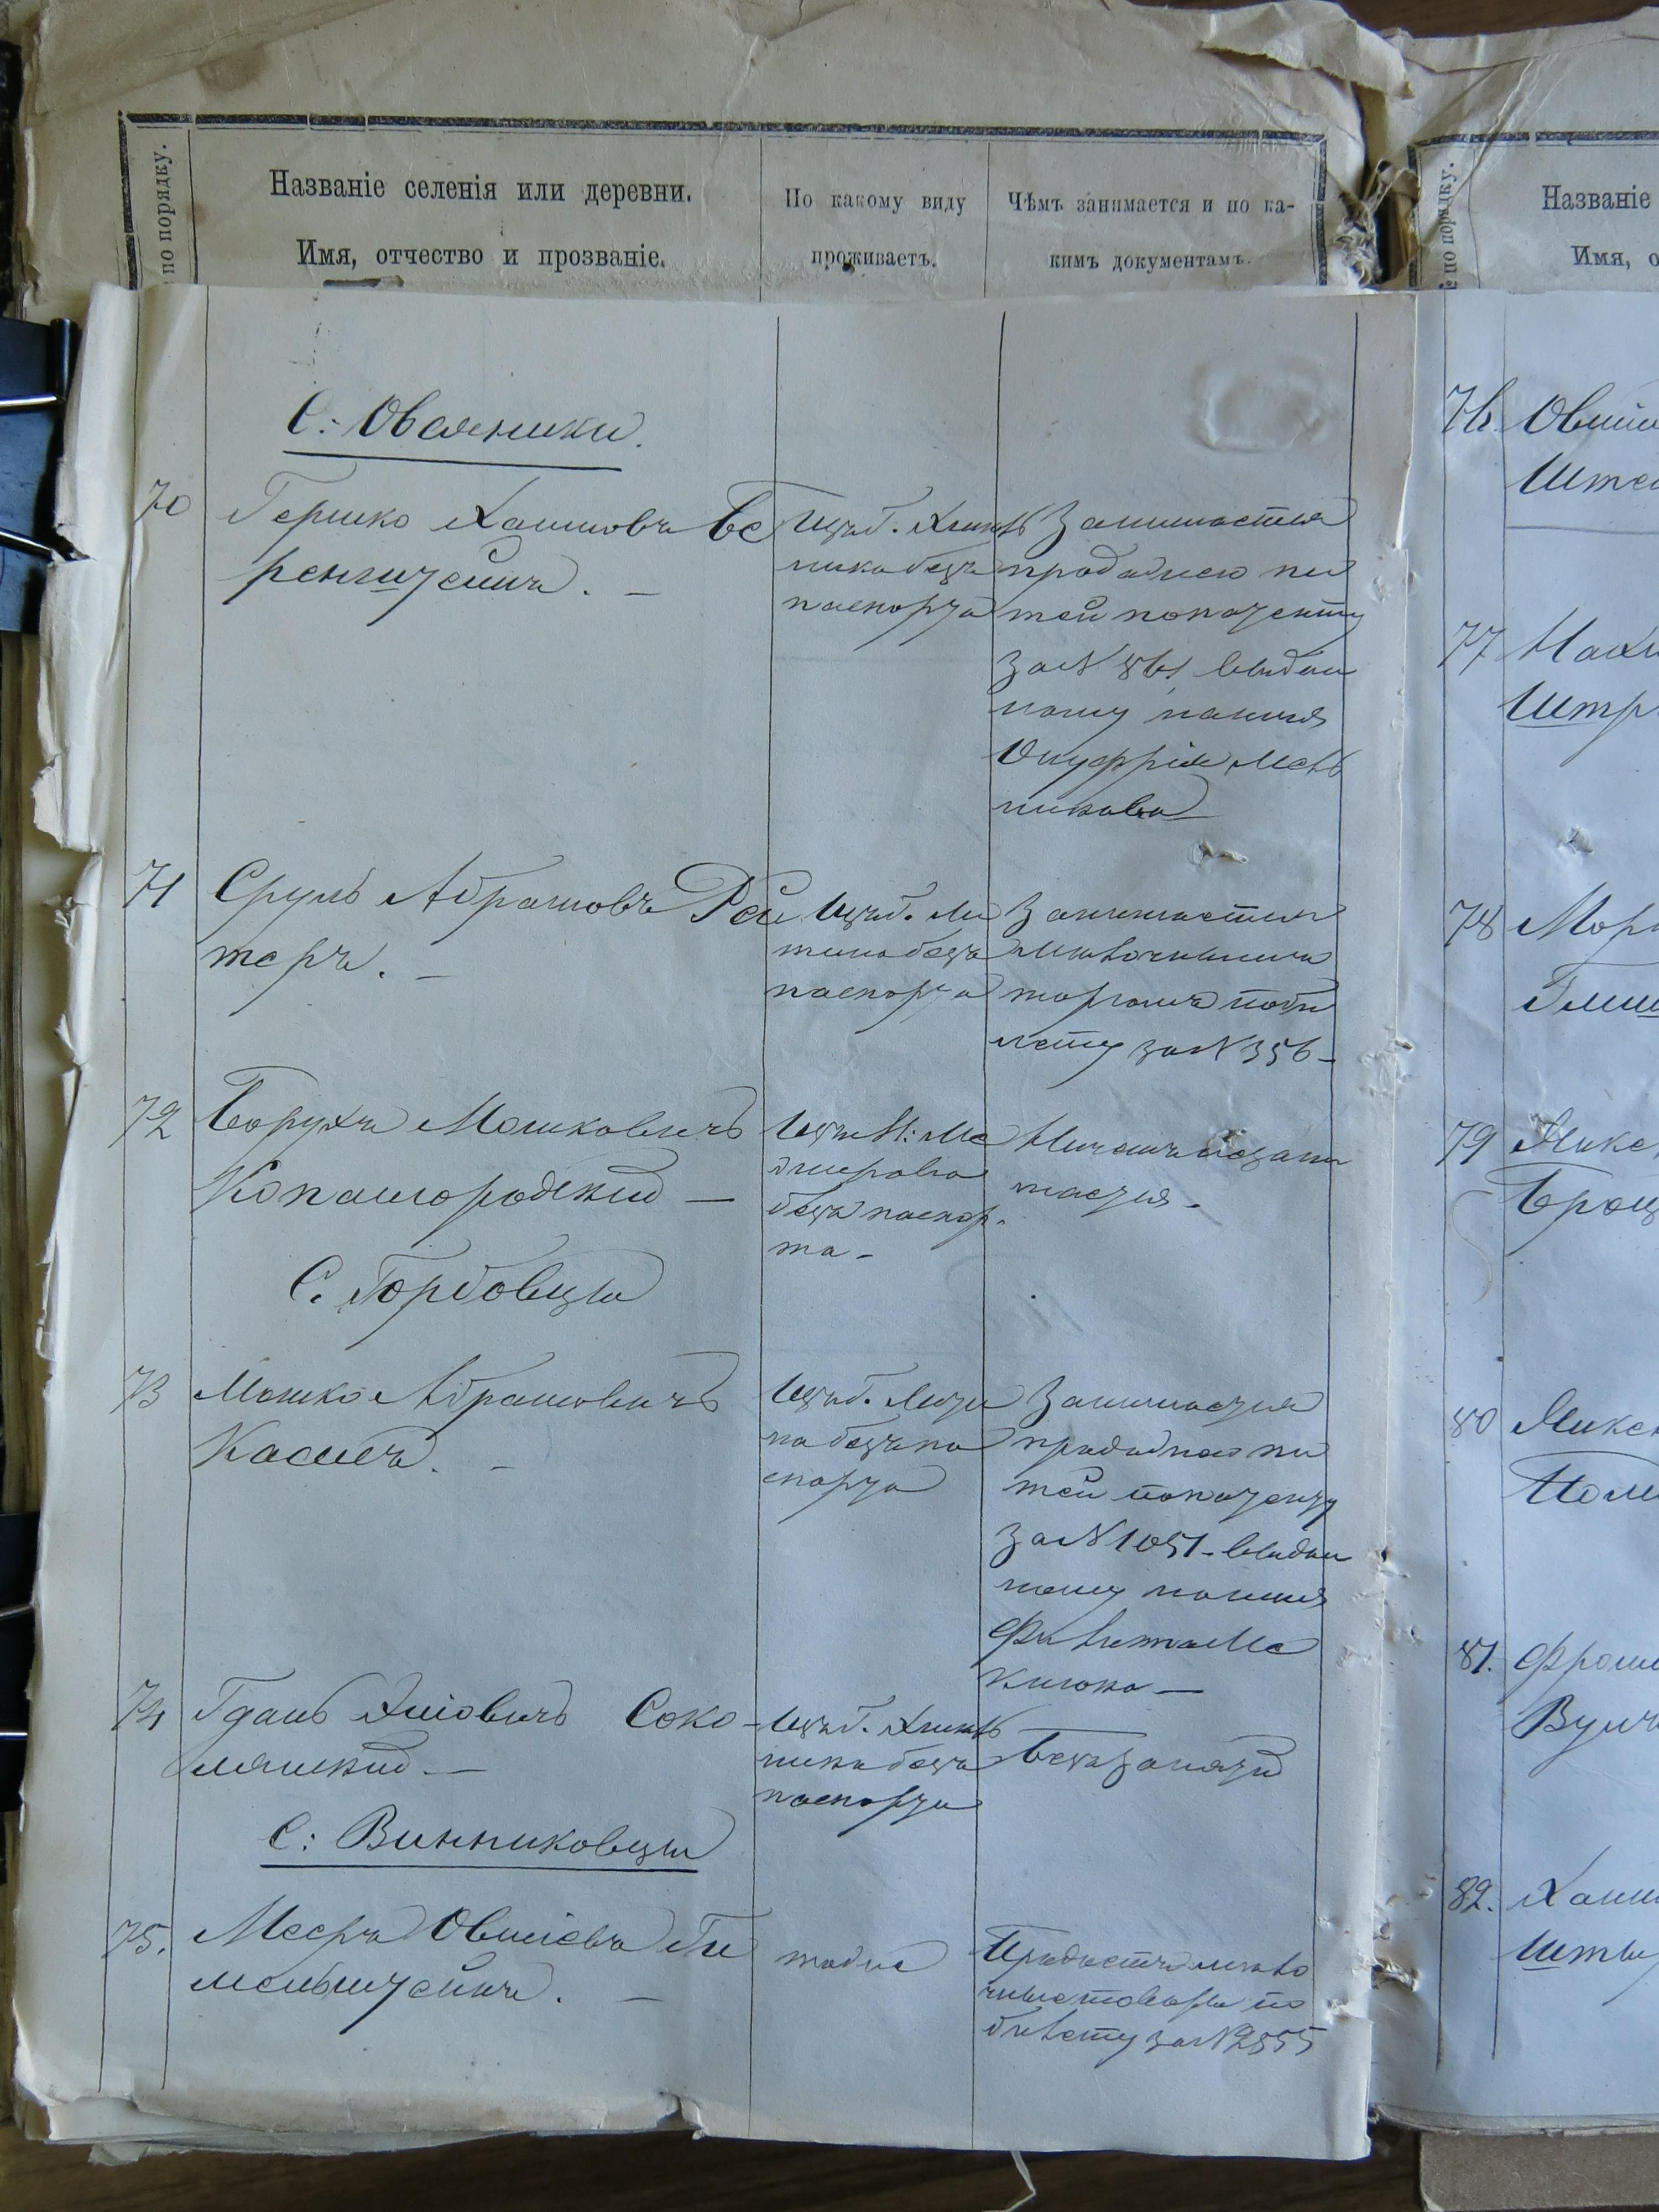 № по порядку.
Названіе селенія или деревни.
Имя, отчество и прозваніе.
По какому виду
проживаетъ.
Чѣмъ занимается и по ка-
кимъ документамъ.
С: Овсяники.
70
Гершко Хаимовъ Бе
ренштейнъ. —
Изъ б. Хмѣль
ника безъ
паспорта
Занимается
продажею пи
тей по патенту
за № 861 выдан
ному на имя
Онуфрія Мель
никова
71
Сруль Абрамовъ Рей
теръ. —
Изъ б. Ли
тина безъ
паспорта
Занимается
мѣлочнымъ
торгомъ по би
лету за № 356 —
72
Борухъ Мошковичъ
Копайгородскій —
Изъ М:
безъ паспор-
та —
Ничемъ незани
мается.
С. Горбовцы
73
Мошко Абрамовичъ
Касиеръ. —
Изъ б. Лити
на безъ па
спорта
Занимается
продажею пи
тей по патенту
за № 1051 — выдан
ному на имя
74
Гдаль Хаіовичъ Соко-
лянскій. —
Изъ б. Хмѣль
ника безъ
паспорта
Безъ занятій
С: Винниковцы
75.
Мееръ Овшіевъ Ги
мельштейнъ. —
тоже
Продаетъ мѣло
чные товары по
билету за № 2855
№ по порядку.
Названіе
Имя, о
76.
Овши
Ште
77
Нахи
Штр
78
Морд
79
80
81.
Фрои
82.
Хаим